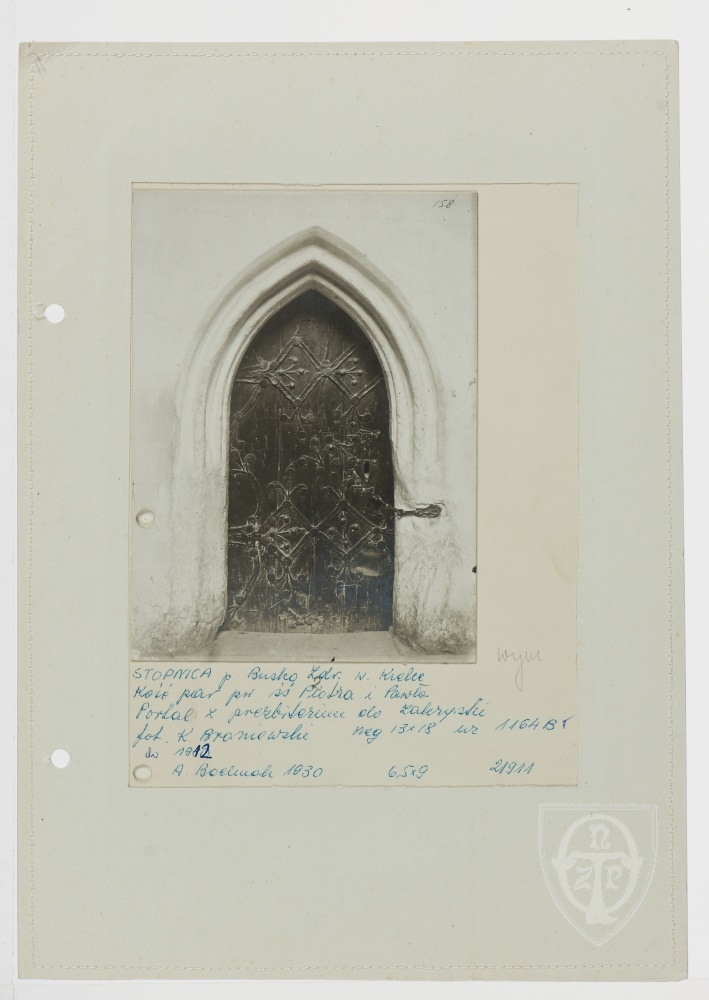 158
wym
STOPNICA p. Busko Zdr. w. Kielce
Kość par pw śś Piotra i Pawła
Portal z prezbiterium do zakrystii
fot. K Broniewski neg 13x18 nr 1164B
do 1912
A. Bochnak 1930 6,5x9 21911
n
Z P